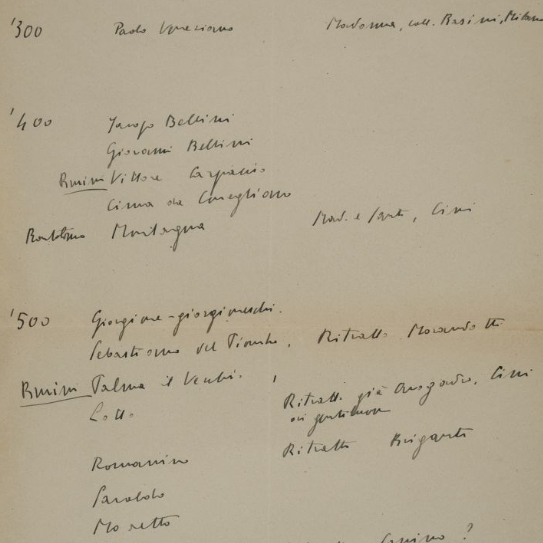 '300 Paolo Veneziano Madonna, coll. Basini, Milano
'400 Jacopo Bellini
Giovanni Bellini
Vittore Carpaccio
Cima da Conegliano
Bartolomeo Montagna Mad. e Santi, Cini
'500 Giorgione - giorgioneschi.
Sebastiano del Piombo, Ritratto Morandotti
Palma il Vecchio.
Lotto Ritratti già Avogadro, Cini
di gentiluomo
Romanino Ritratto Briganti
Savoldo
Moretto
?